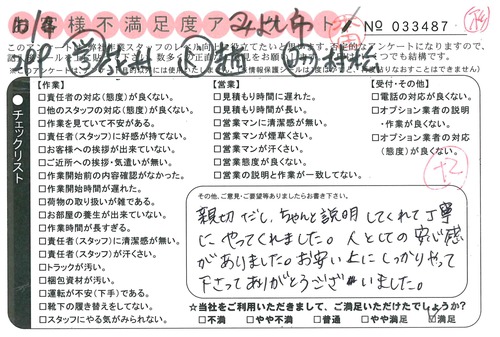 お客様不満足度アンケート
みよし市
No 033487
【作業】
□責任者の対応(態度)が良くない。
□他のスタッフの対応(態度)が良くない。
□作業を見ていて不安がある。
□責任者(スタッフ)に好感が持てない。
□お客様への挨拶が出来ていない。
□ご近所への挨拶・気遣いが無い。
□作業開始前の内容確認がなかった。
□作業開始時間が遅れた。
□荷物の取り扱いが雑である。
□お部屋の養生が出来ていない。
□作業時間が長すぎる。
□責任者(スタッフ)に清潔感が無い。
□責任者(スタッフ)が汗くさい。
□トラックが汚い。
□梱包資材が汚い。
□運転が不安(下手)である。
□靴下の履き替えをしてない。
□スタッフにやる気がみられない。
【営業】
□見積もり時間に遅れた。
□見積もり時間が長い。
□営業マンに清潔感が無い。
□営業マンが煙草くさい。
□営業マンが汗くさい。
□営業マンの態度が良くない。
□営業の説明と作業が一致してない。
【受付・その他】
□電話の対応が良くない。
□オプション業者の説明
・作業が良くない。
□オプション業者の対応
(態度)が良くない。
チェックリスト
その他、ご意見・ご要望等ありましたらお書き下さい。
親切だし、ちゃんと説明してくれて丁寧
にやってくれました。人としての安心感
がありました。お安い上にしっかりやって
下さってありがとうございいました。
☆当社をご利用いただきまして、ご満足いただけたでしょうか?
□不満 □やや不満 □普通 □やや満足 □満足